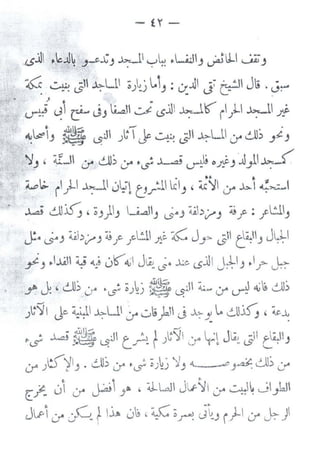 — ٤٢ —
وتقف الحائض والنفساء بباب المسجد وتدعو بالدعاء الذى
سبق . قال الشيخ تقي الدين : وأما زيارة المساجد التى بنيت بمكة
غير المسجد الحرام كالمسجد الذى تحت الصفا وفى سفح أبى قبيس
ونحو ذلك من المساجد التى بنيت على آثار النبى ﷺ وأصحابه
كمسجد المولد وغيره فليس قصد شىء من ذلك من السنّة ، ولا
استحبّه أحد من الأئمة ، وانما المشروع إتيان المسجد الحرام خاصة
والمشاعر : عرفة ومزدلفة ومنى والصفا والمروة ، وكذلك قصد
الجبال والبقاع التى حول مكة غير المشاعر عرفة ومزدلفة ومنى مثل
جبل حراء والجبل الذى عند منى يقال انه كان فيه قبة الفداء ونحو
ذلك فانه ليس من سنة النبى ﷺ زيارة شىء من ذلك ، بل هو
بدعة ، وكذلك ما يوجد فى الطرقات من المساجد المبنية على الآثار
والبقاع التى يقال إنها من الآثار لم يشرع النبى ﷺ قصد شىء
من ذلك بخصوصه ولا زيارة شىء من ذلك . والإكثار من
الطواف بالبيت من الأعمال الصالحة ، هو أفضل من أن يخرج
الرجل من الحرم ويأتى بعمرة مكية ، فان هذا لم يكن من أعمال